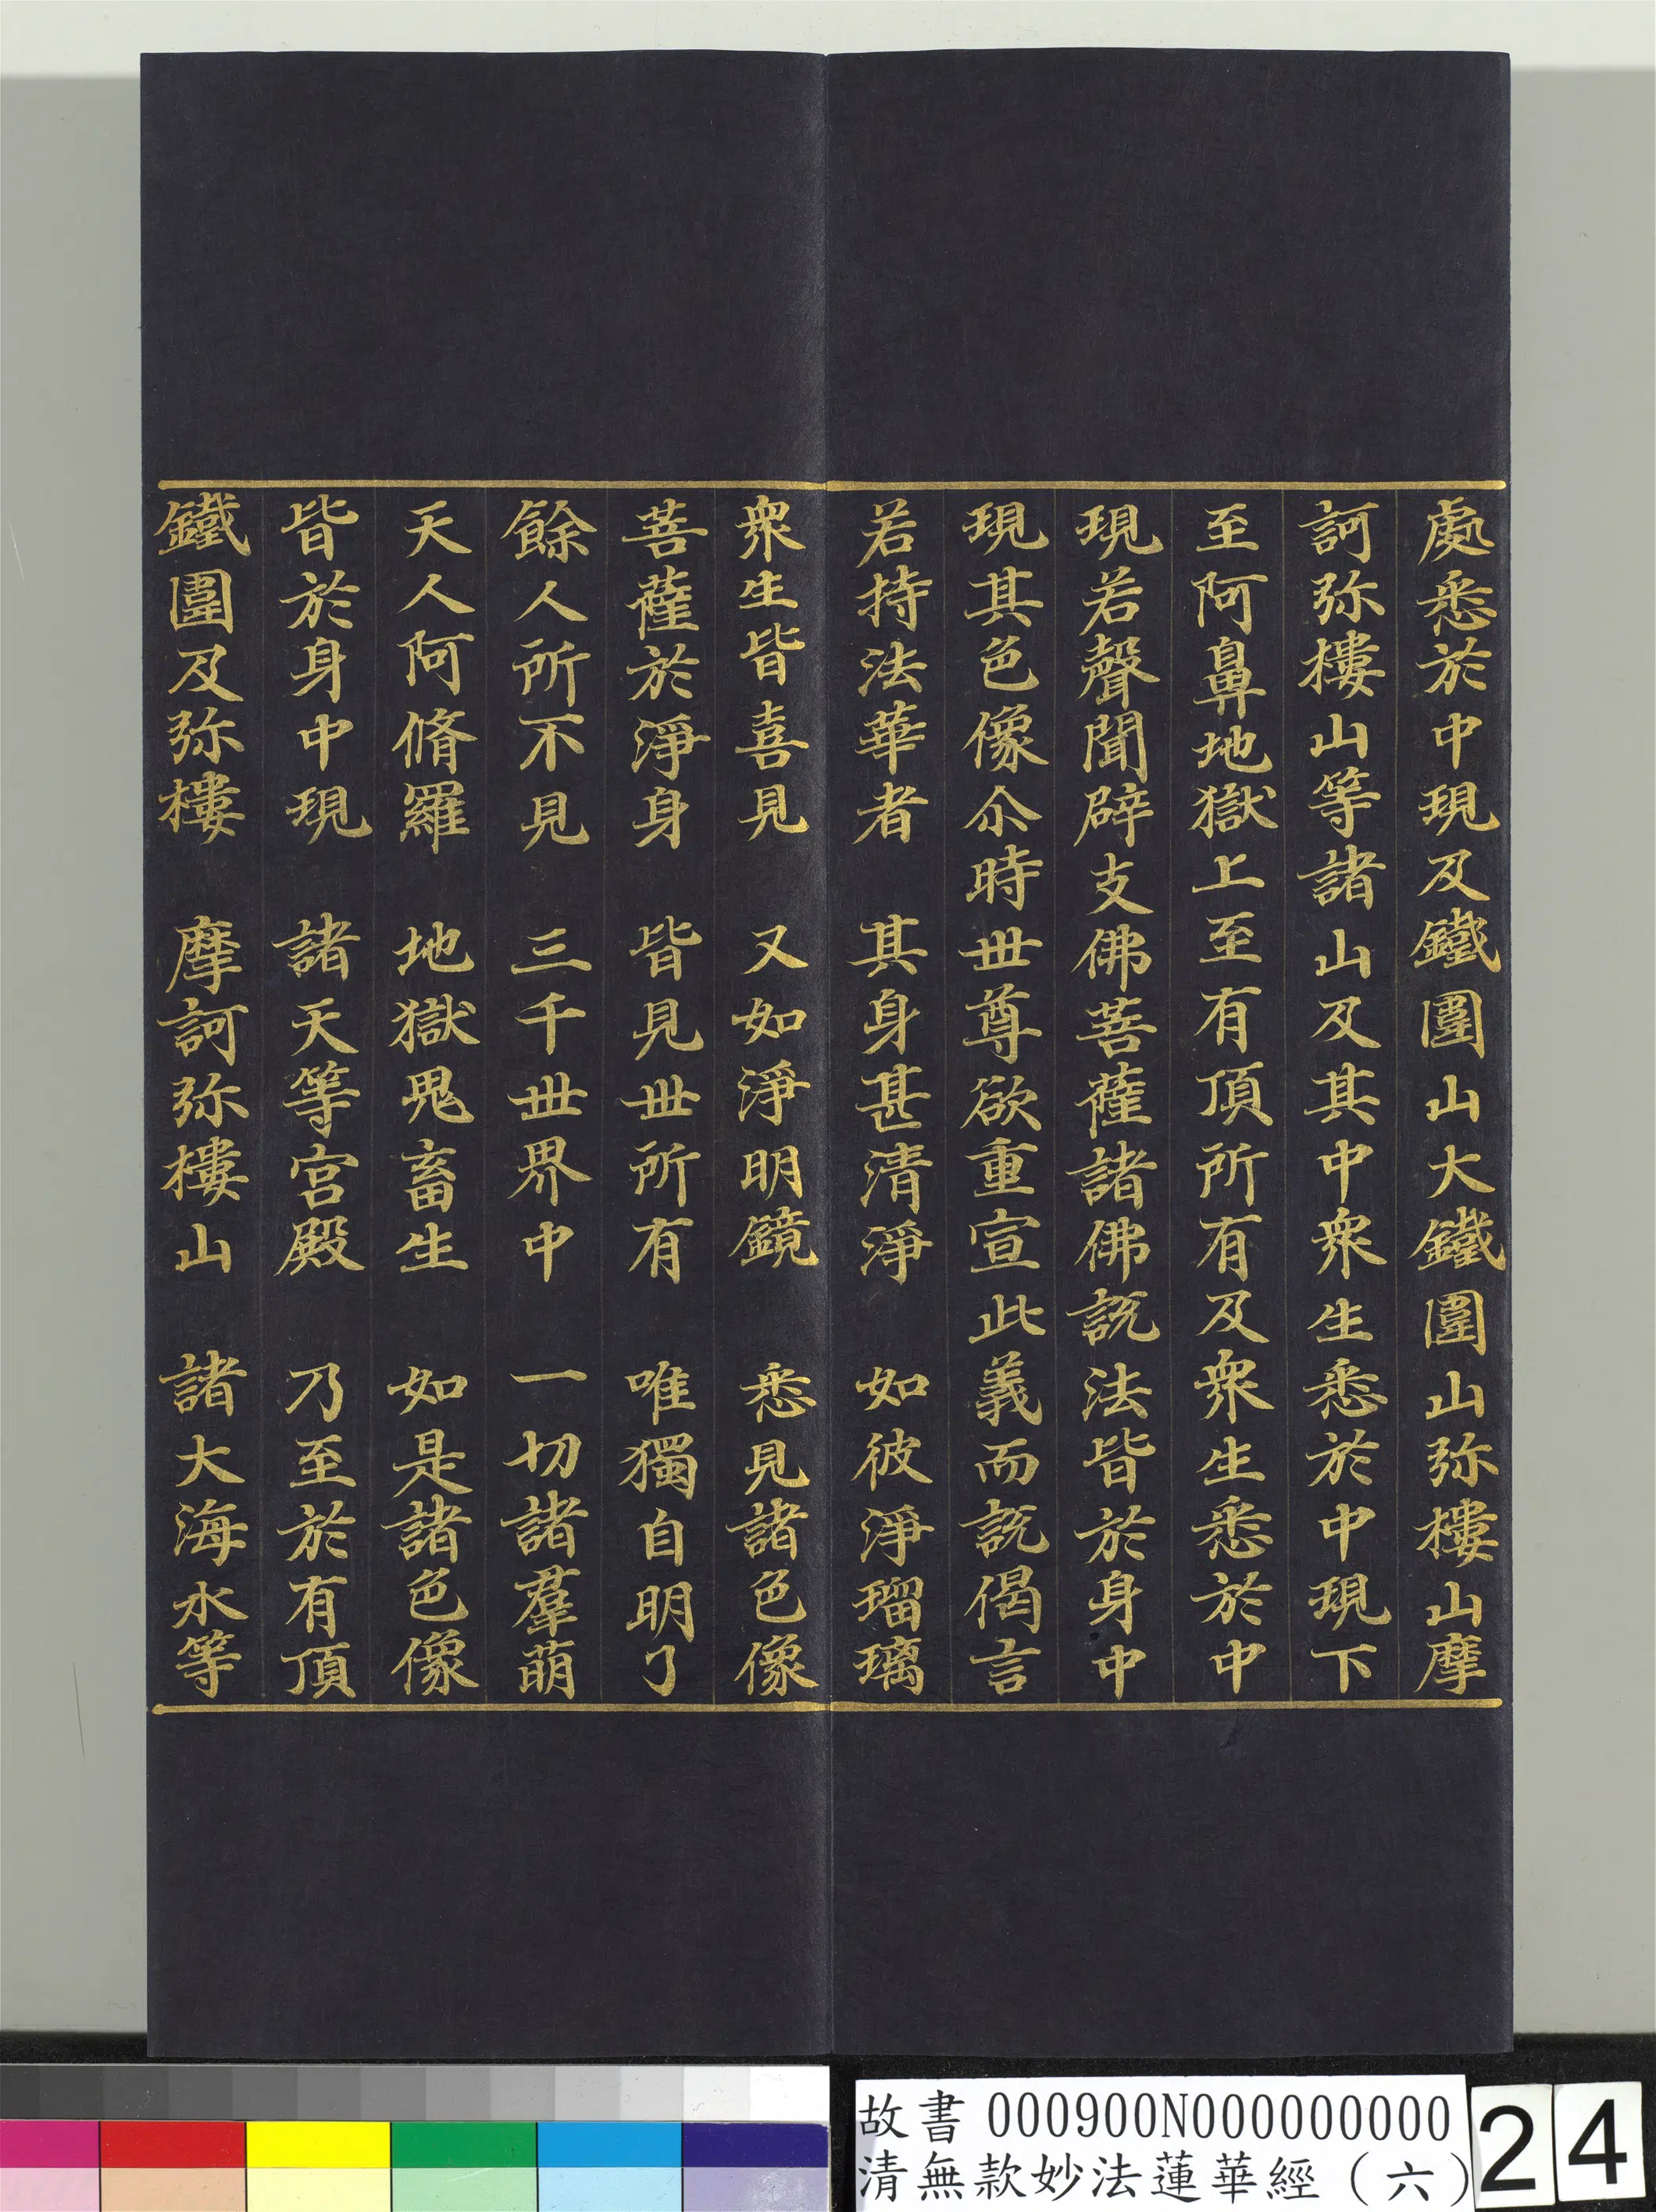 處悉於中現及鐵圍山大鐵圍山弥樓山摩
訶弥樓山等諸山及其中衆生悉於中現下
至阿鼻地獄上至有頂所有及衆生悉於中
現若聲聞辟支佛菩薩諸佛說法皆於身中
現其色像尒時世尊欲重宣此義而說偈言
若持法華者　其身甚清淨　如彼淨瑠璃
衆生皆喜見　又如淨明鏡　悉見諸色像
菩薩於淨身　皆見世所有　唯獨自明了
餘人所不見　三千世界中　一切諸羣萌
天人阿脩羅　地獄鬼畜生　如是諸色像
皆於身中現　諸天等宮殿　乃至於有頂
鐵圍及弥樓　摩訶弥樓山　諸大海水等
故書 000900N000000000
清無款妙法蓮華經（六）
24